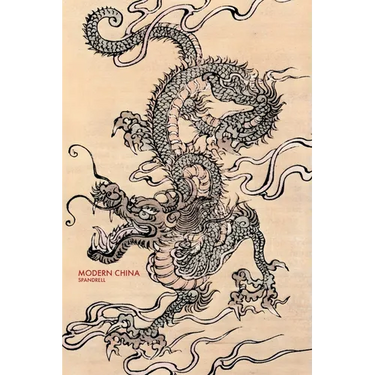 MODERN CHINA
SPANDRELL